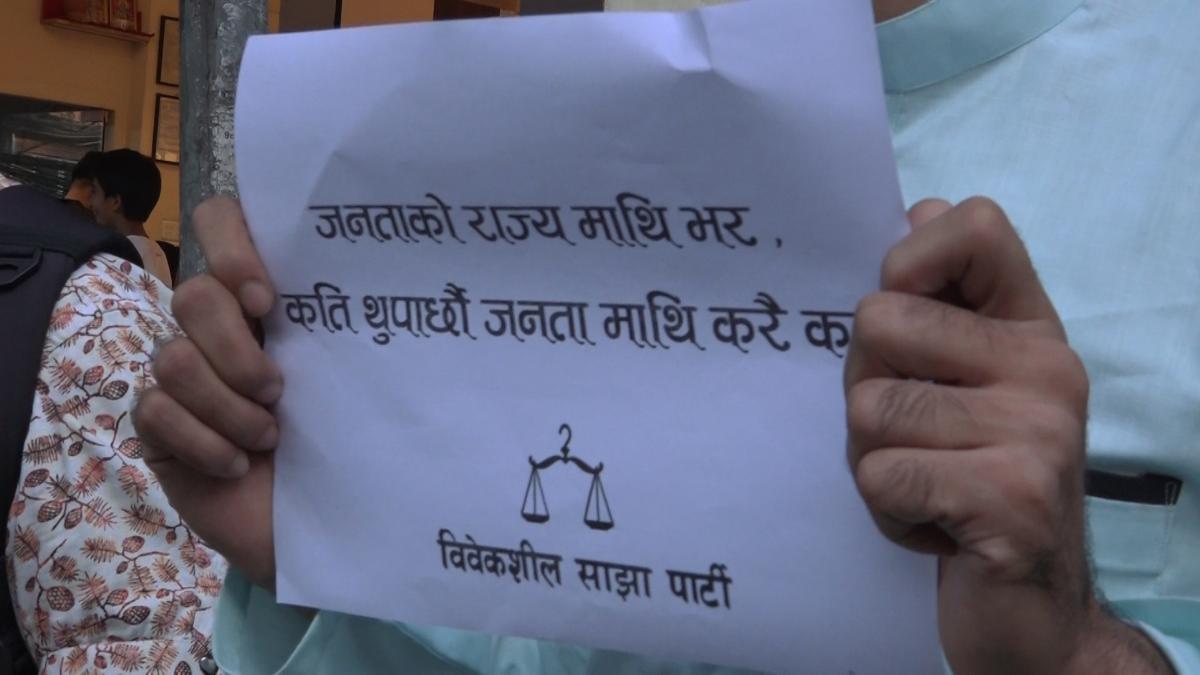 जनताको राज्य माथि भर ,
कति थुपार्छौं जनता माथि करै
विवेकशील साझा पार्टी